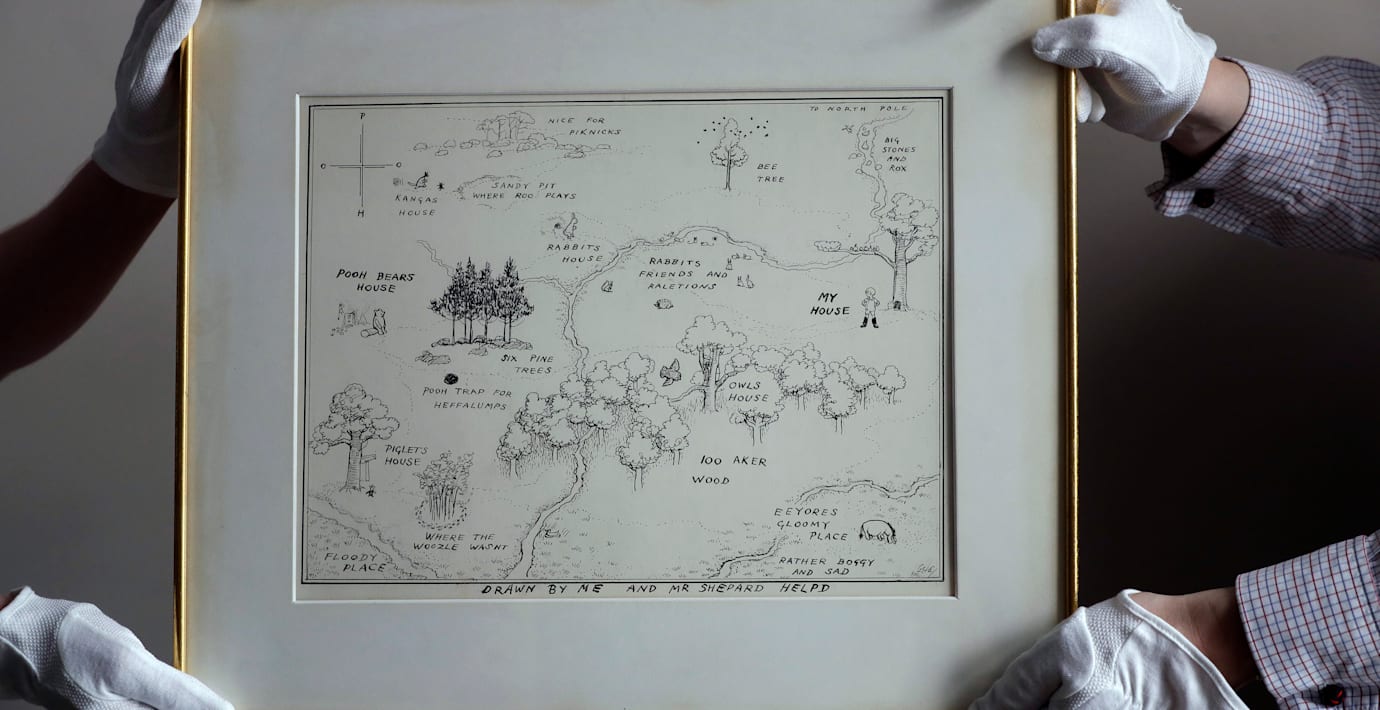 TO NORTH POLE
P
O
O
H
NICE FOR
PIKNICKS
BEE
TREE
BIG
STONES
AND
ROX
KANGAS
HOUSE
SANDY PIT
WHERE ROO PLAYS
RABBITS
HOUSE
RABBITS
FRIENDS AND
RALETIONS
POOH BEARS
HOUSE
MY
HOUSE
SIX PINE
TREES
POOH TRAP FOR
HEFFALUMPS
OWLS
HOUSE
PIGLETS
HOUSE
100 AKER
WOOD
WHERE THE
WOOZLE WASNT
FLOODY
PLACE
EEYORES
GLOOMY
PLACE
RATHER BOGGY
AND SAD
DRAWN BY ME AND MR SHEPARD HELPD